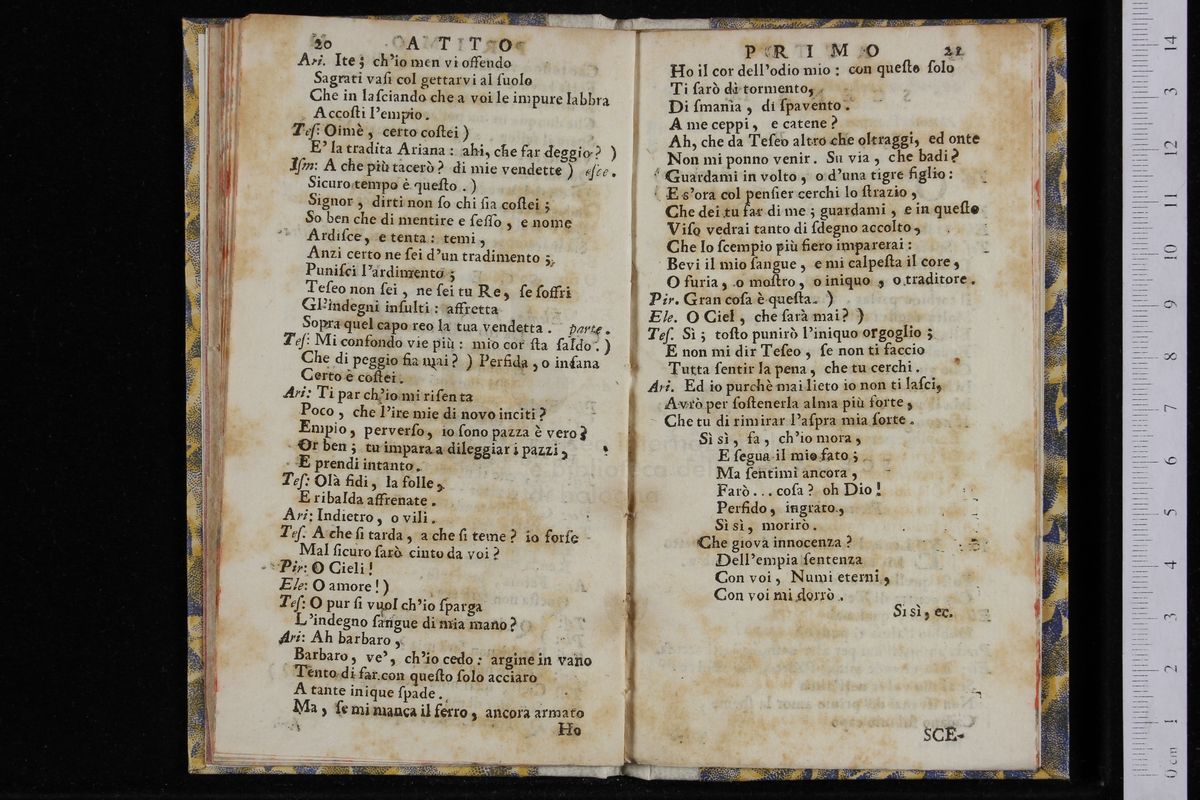 20 ATTO
Ari. Ite; ch'io men vi offendo
Sagrati vaſi col gettarvi al ſuolo
Che in laſciando che a voi le impure labbra
Accoſti l'empio.
Teſ: Oimè, certo coſtei)
E' la tradita Ariana: ahi, che far deggio?)
Iſm: A che più tacerò? di mie vendette) eſce.
Sicuro tempo è queſto.)
Signor, dirti non ſo chi ſia coſtei;
So ben che di mentire e ſeſſo, e nome
Ardiſce, e tenta: temi,
Anzi certo ne ſei d'un tradimento;
Puniſci l'ardimento;
Teſeo non ſei, ne ſei tu Re, ſe ſoffri
Gl'indegni inſulti: affretta
Sopra quel capo reo la tua vendetta. parte.
Teſ: Mi confondo vie più: mio cor ſta ſaldo.)
Che di peggio fia mai?) Perfida, o inſana
Certo è coſtei.
Ari: Ti par ch'io mi riſenta
Poco, che l'ire mie di novo inciti?
Empio, perverſo, io ſono pazza è vero?
Or ben; tu impara a dileggiar i pazzi,
E prendi intanto.
Teſ: Olà fidi, la folle,
E ribalda affrenate.
Ari: Indietro, o vili.
Teſ. A che ſi tarda, a che ſi teme? io forſe
Mal ſicuro ſarò cinto da voi?
Pir: O Cieli!
Ele: O amore!)
Teſ: O pur ſi vuol ch'io ſparga
L'indegno ſangue di mia mano?
Ari: Ah barbaro,
Barbaro, ve', ch'io cedo: argine in vano
Tento di far con queſto ſolo acciaro
A tante inique ſpade.
Ma, ſe mi manca il ferro, ancora armato
Ho
PRIMO 21
Ho il cor dell'odio mio: con queſto ſolo
Ti ſarò di tormento,
Di ſmania, di ſpavento.
A me ceppi, e catene?
Ah, che da Teſeo altro che oltraggi, ed onte
Non mi ponno venir. Su via, che badi?
Guardami in volto, o d'una tigre figlio:
E s'ora col penſier cerchi lo ſtrazio,
Che dei tu far di me; guardami, e in queſto
Viſo vedrai tanto di ſdegno accolto,
Che lo ſcempio più fiero imparerai:
Bevi il mio ſangue, e mi calpeſta il core,
O furia, o moſtro, o iniquo, o traditore.
Pir. Gran coſa è queſta.)
Ele. O Ciel, che ſarà mai?)
Teſ. Sì; toſto punirò l'iniquo orgoglio;
E non mi dir Teſeo, ſe non ti faccio
Tutta ſentir la pena, che tu cerchi.
Ari. Ed io purchè mai lieto io non ti laſci,
Avrò per ſoſtenerla alma più forte,
Che tu di rimirar l'aſpra mia ſorte.
Sì sì, fa, ch'io mora,
E ſegua il mio fato;
Ma ſentimi ancora,
Farò... coſa? oh Dio!
Perfido, ingrato,
Sì sì, morirò.
Che giova innocenza?
Dell'empia ſentenza
Con voi, Numi eterni,
Con voi mi dorrò.
Si sì, ec.
SCE-
0 cm 1 2 3 4 5 6 7 8 9 10 11 12 13 14